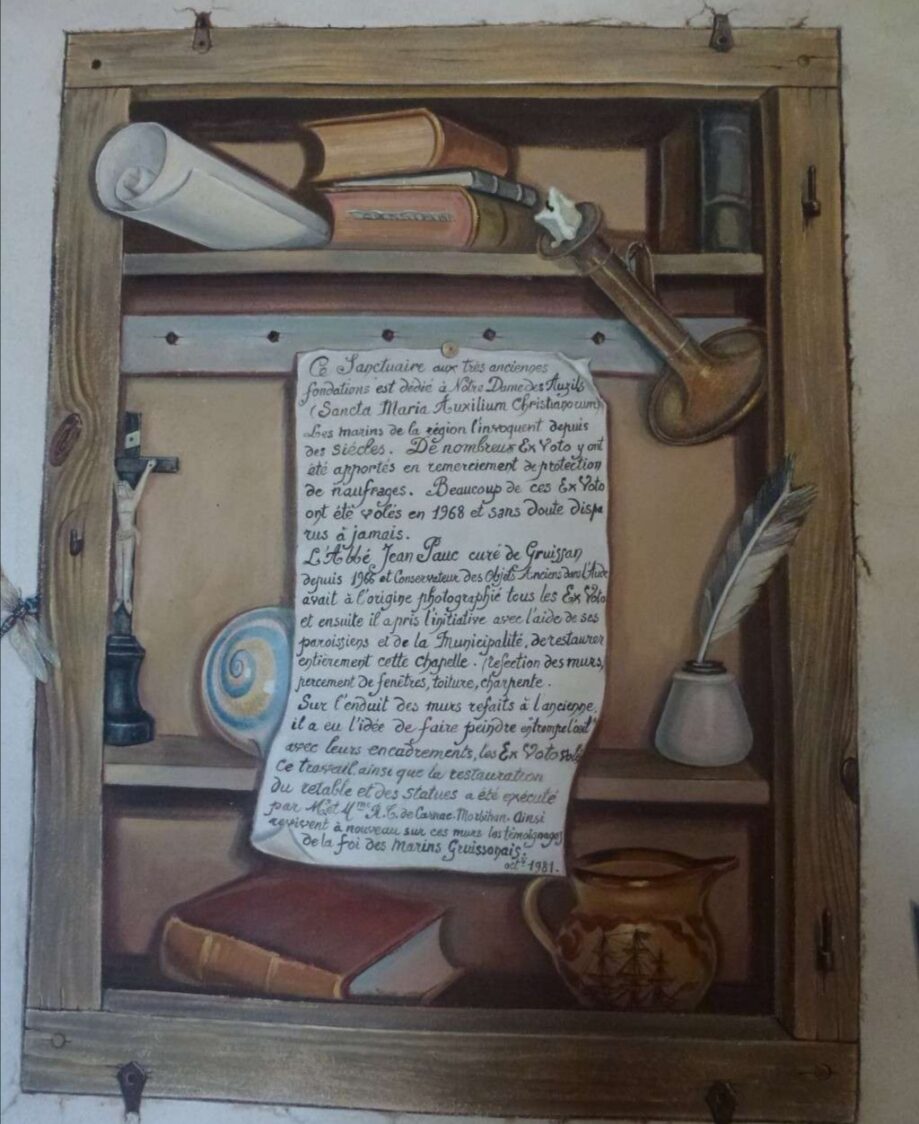 Ce Sanctuaire aux très anciennes
fondations est dédié à Notre Dame des Auzils
(Sancta Maria Auxilium Christianorum)
Les marins de la région l'invoquent depuis
des siècles. De nombreux Ex Voto y ont
été apportés en remerciement de protection
de naufrages. Beaucoup de ces Ex Voto
ont été volés en 1968 et sans doute dispa
rus à jamais.
L'Abbé Jean Pauc curé de Gruissan
depuis et Conservateur des Objets Anciens dans l'Aude
avait à l'origine photographié tous les Ex Voto
et ensuite il a pris l'initiative avec l'aide de ses
paroissiens et de la Municipalité, de restaurer
entièrement cette chapelle. Refection des murs,
percement de fenêtres, toiture, charpente.
Sur l'enduit des murs refaits à l'ancienne,
il a eu l'idée de faire peindre en trompe l'oeil
avec leurs encadrements, les Ex Voto volés
Ce travail ainsi que la restauration
du retable et des statues a été exécuté
par M. et Mme R.C. de Carnac. Morbihan. Ainsi
revivent à nouveau sur ces murs les témoignages
de la foi des Marins Gruissanais.
1981.